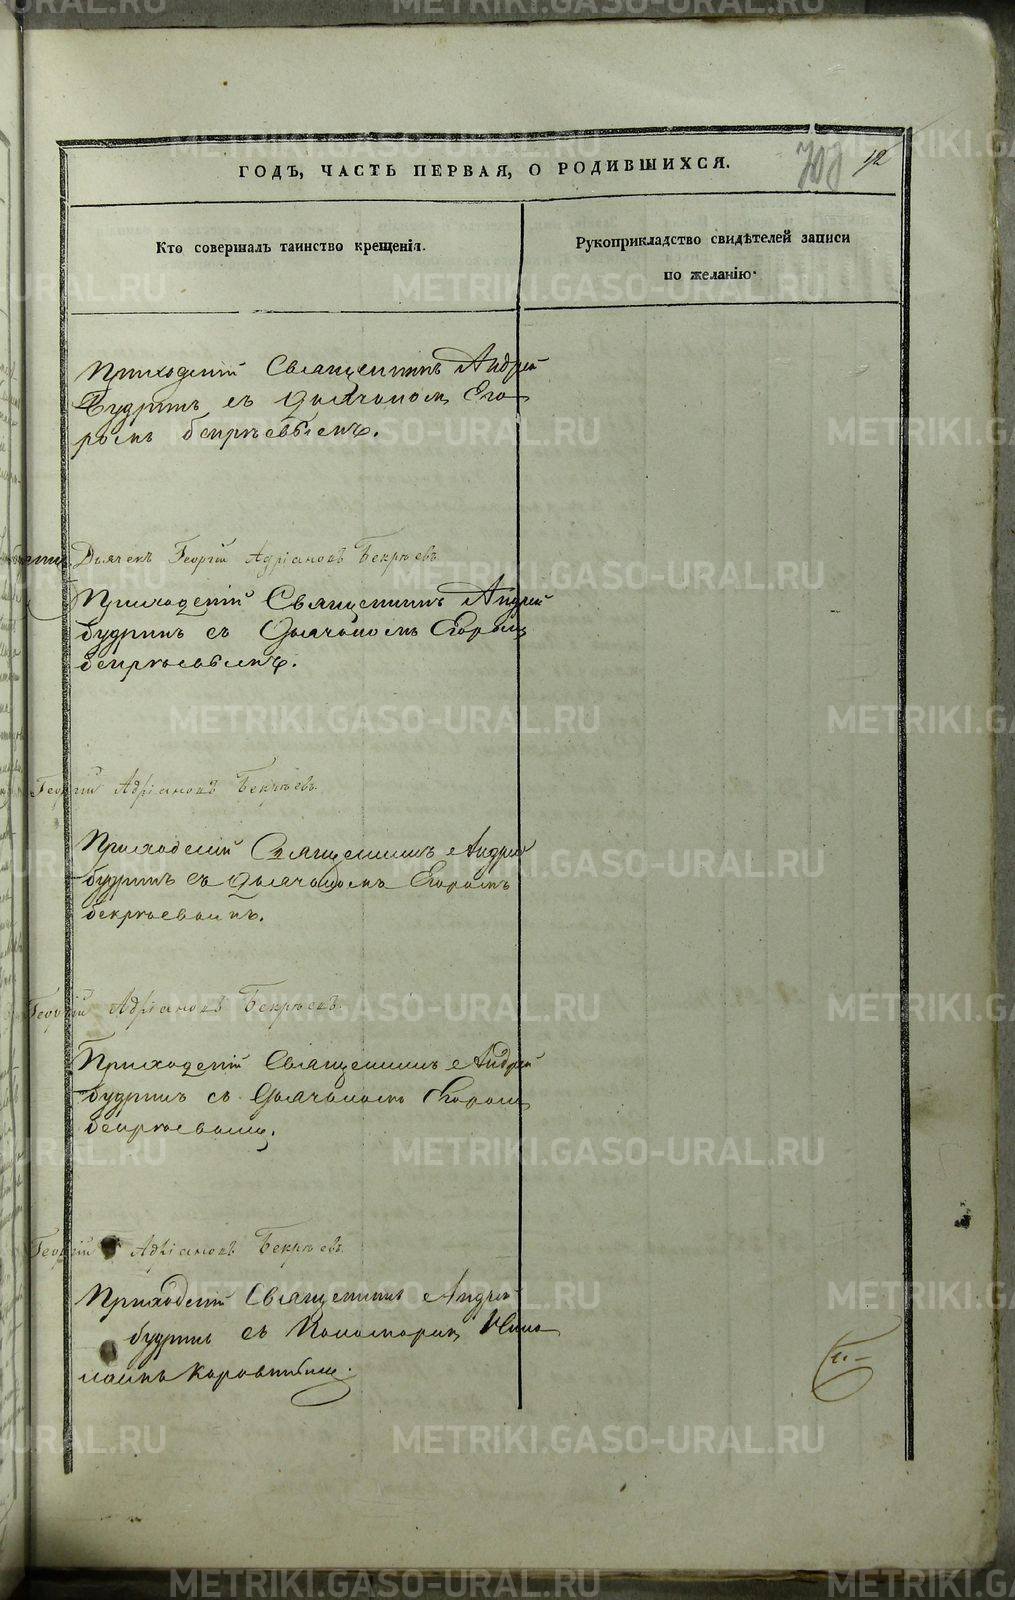 ГОДЪ, ЧАСТЬ ПЕРВАЯ, О РОДИВШИХСЯ.
12
Кто совершалъ таинство крещенія.
Рукоприкладство свидѣтелей записи
по желанію.
Приходскій Священникъ Андрей
Будринъ съ Дьячкомъ Его
ромъ Бекрѣевымъ.
Дьячекъ Георгій Адріановъ Бекрѣевъ.
Приходскій Священникъ Андрей
Будринъ съ Дьячкомъ Егоромъ
Бекрѣевымъ.
Георгій Адріановъ Бекрѣевъ.
Приходскій Священникъ Андрей
Будринъ съ Дьячкомъ Егоромъ
Бекрѣевымъ.
Георгій Адріановъ Бекрѣевъ.
Приходскій Священникъ Андрей
Будринъ съ Дьячкомъ Егоромъ
Бекрѣевымъ.
Георгій Адріановъ Бекрѣевъ.
Приходскій Священникъ Андрей
Будринъ съ Пономаремъ
METRIKI.GASO-URAL.RU